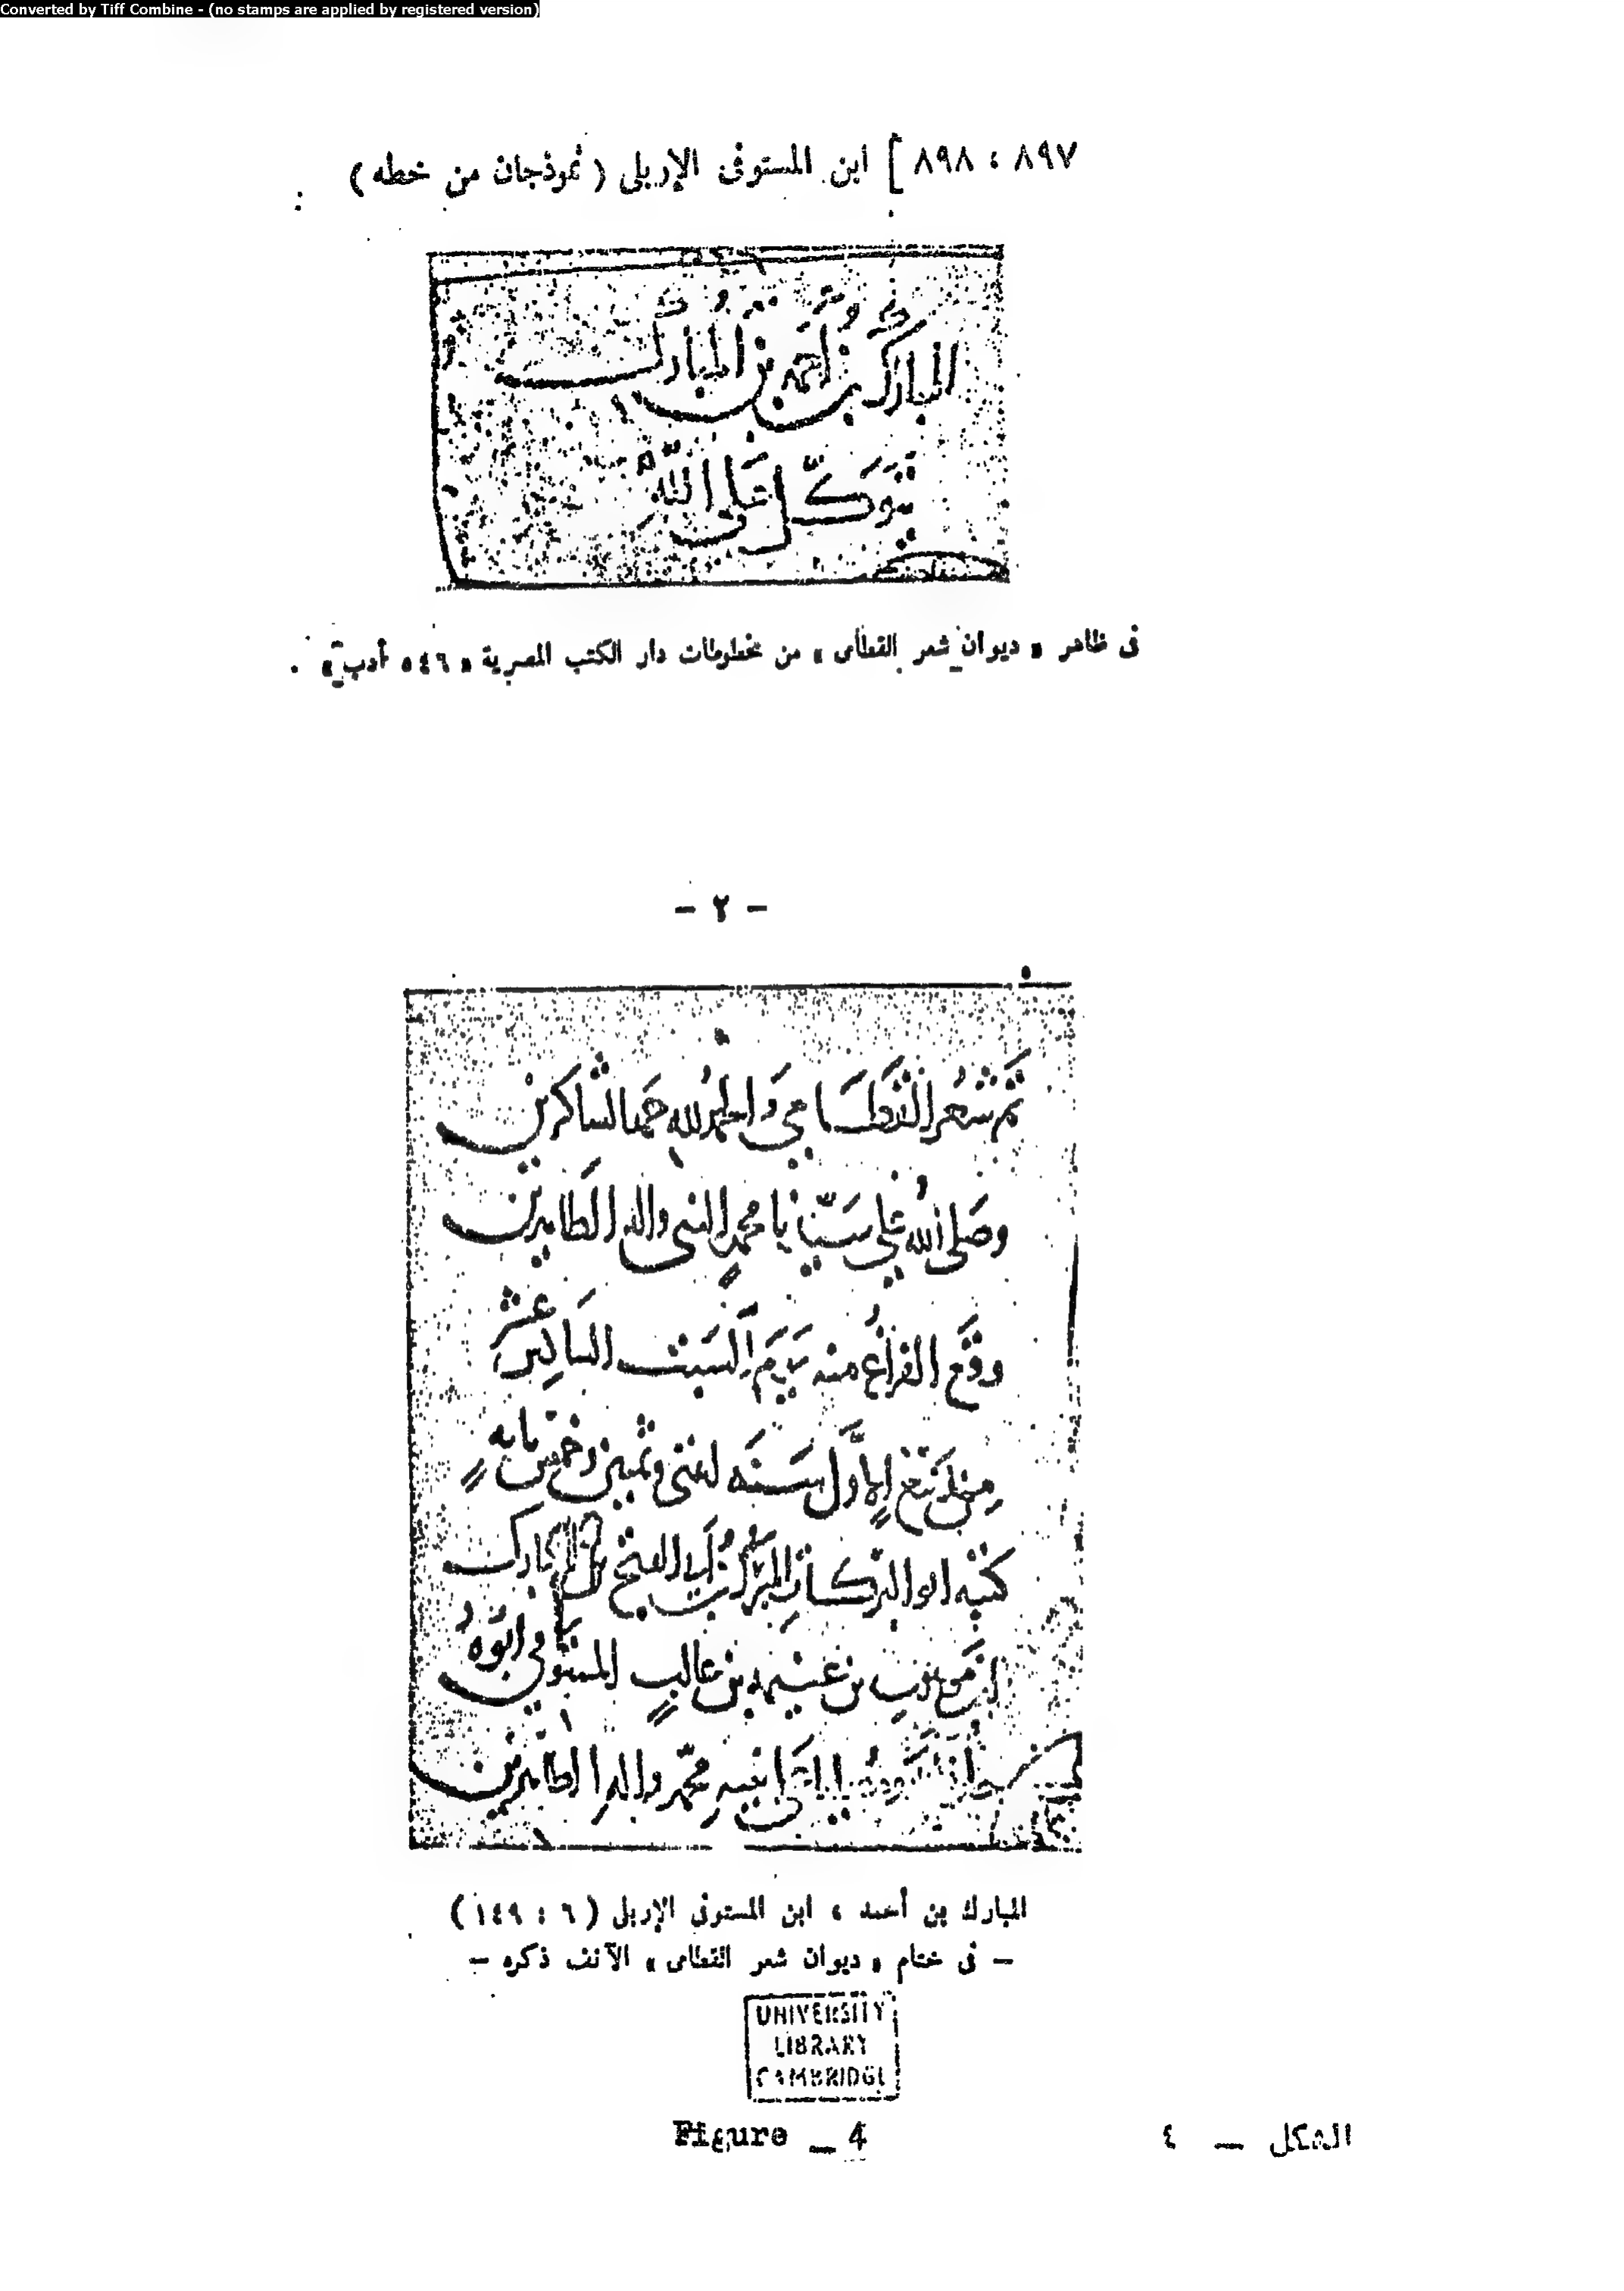 Converted by Tiff Combine - (no stamps are applied by registered version)
٨٩٧ ، ٨٩٨ ] ابن المستوفى الإربلى ( نموذجان من خطه )
المبارك بن أحمد بن المبارك
توكل على الله
فى ظاهر « ديوان شعر القطامى » من مخطوطات دار الكتب المصرية « ٥٤٦ أدب » .
- ٢ -
تم شعر القطامي والحمد لله حمد الشاكرين
وصلى الله على سيدنا محمد النبي واله الطاهرين
وقع الفراغ منه يوم السبت السادس عشر
من ربيع الاول سنة اثنتي وثمنين وخمس مايه
كتبه ابو البركات المبارك بن ابي الفتح بن المبارك
بن موهوب بن غنيمه بن غالب المستوفي ابوه
نبيه محمد واله الطاهرين
المبارك بن أحمد ، ابن المستوفى الإربلى ( ٦ : ١٤٩ )
— فى ختام « ديوان شعر القطامى » الآنف ذكره —
UNIVERSITY
LIBRARY
CAMBRIDGE
Figure _ 4
الشكل — ٤